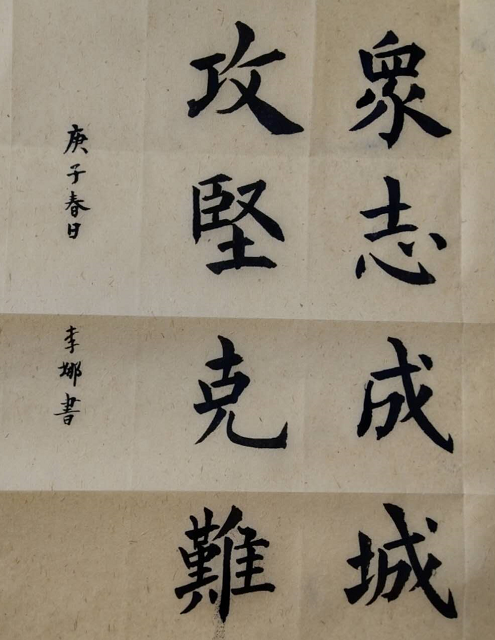 眾志成城
攻堅克難
庚子春日
李娜書